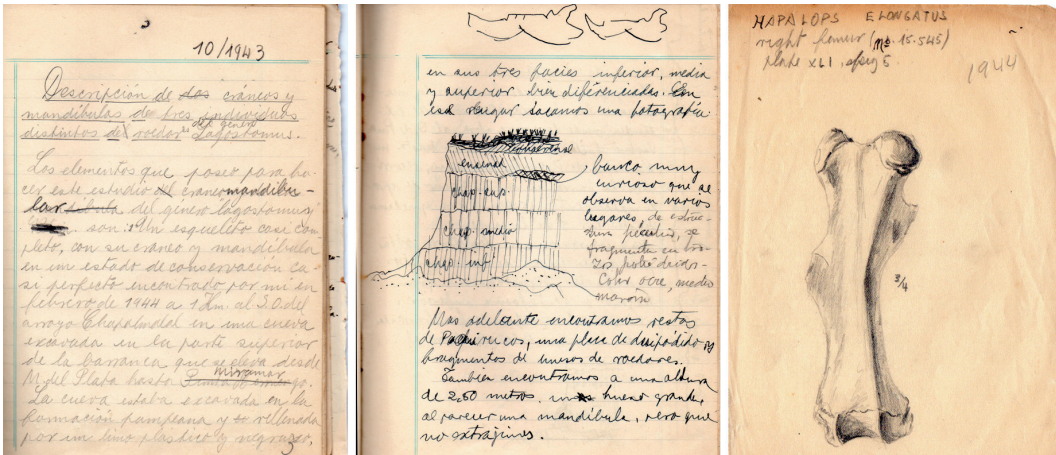 10/1943
Descripción de dos cráneos y
mandíbulas de tres individuos
distintos de roedor del género Lagostomus.
Los elementos que poseo para ha-
cer este estudio del craneomandibu-
lar del género Lagostomus,
son: Un esqueleto casi com
pleto, con su cráneo y mandíbula
en un estado de conservación ca-
si perfecto encontrado por mí en
febrero de 1944 a 1 km al S.O. del
arroyo Chapalmalal en una cueva
excavada en la parte superior
de la barranca que se eleva desde
M. del Plata hasta miramar
La cueva estaba excavada en la
formación pampeana y rellenada
por un limo plástico y negruzco,
3
en sus tres facies inferior, media
y superior bien diferenciadas. En
ese lugar sacamos una fotografía.
ensenad
chap. sup.
chap. medio
chap. inf
banco muy
curioso que se
observa en varios
lugares, de estruc-
tura peculiar, se
fragmenta en tro-
zos poliedricos-
Color ocre, medio
marrón
Mas adelante encontramos restos
de Pachirucos, una placa de dasipódido y
fragmentos de huesos de roedores.
También encontramos a una altura
de 2,50 metros, un hueso grande,
al parecer una mandíbula, pero que
no extrajimos.
HAPALOPS ELONGATUS
right femur (nº 15.545)
plate XLI, fig 5
1944
3/4